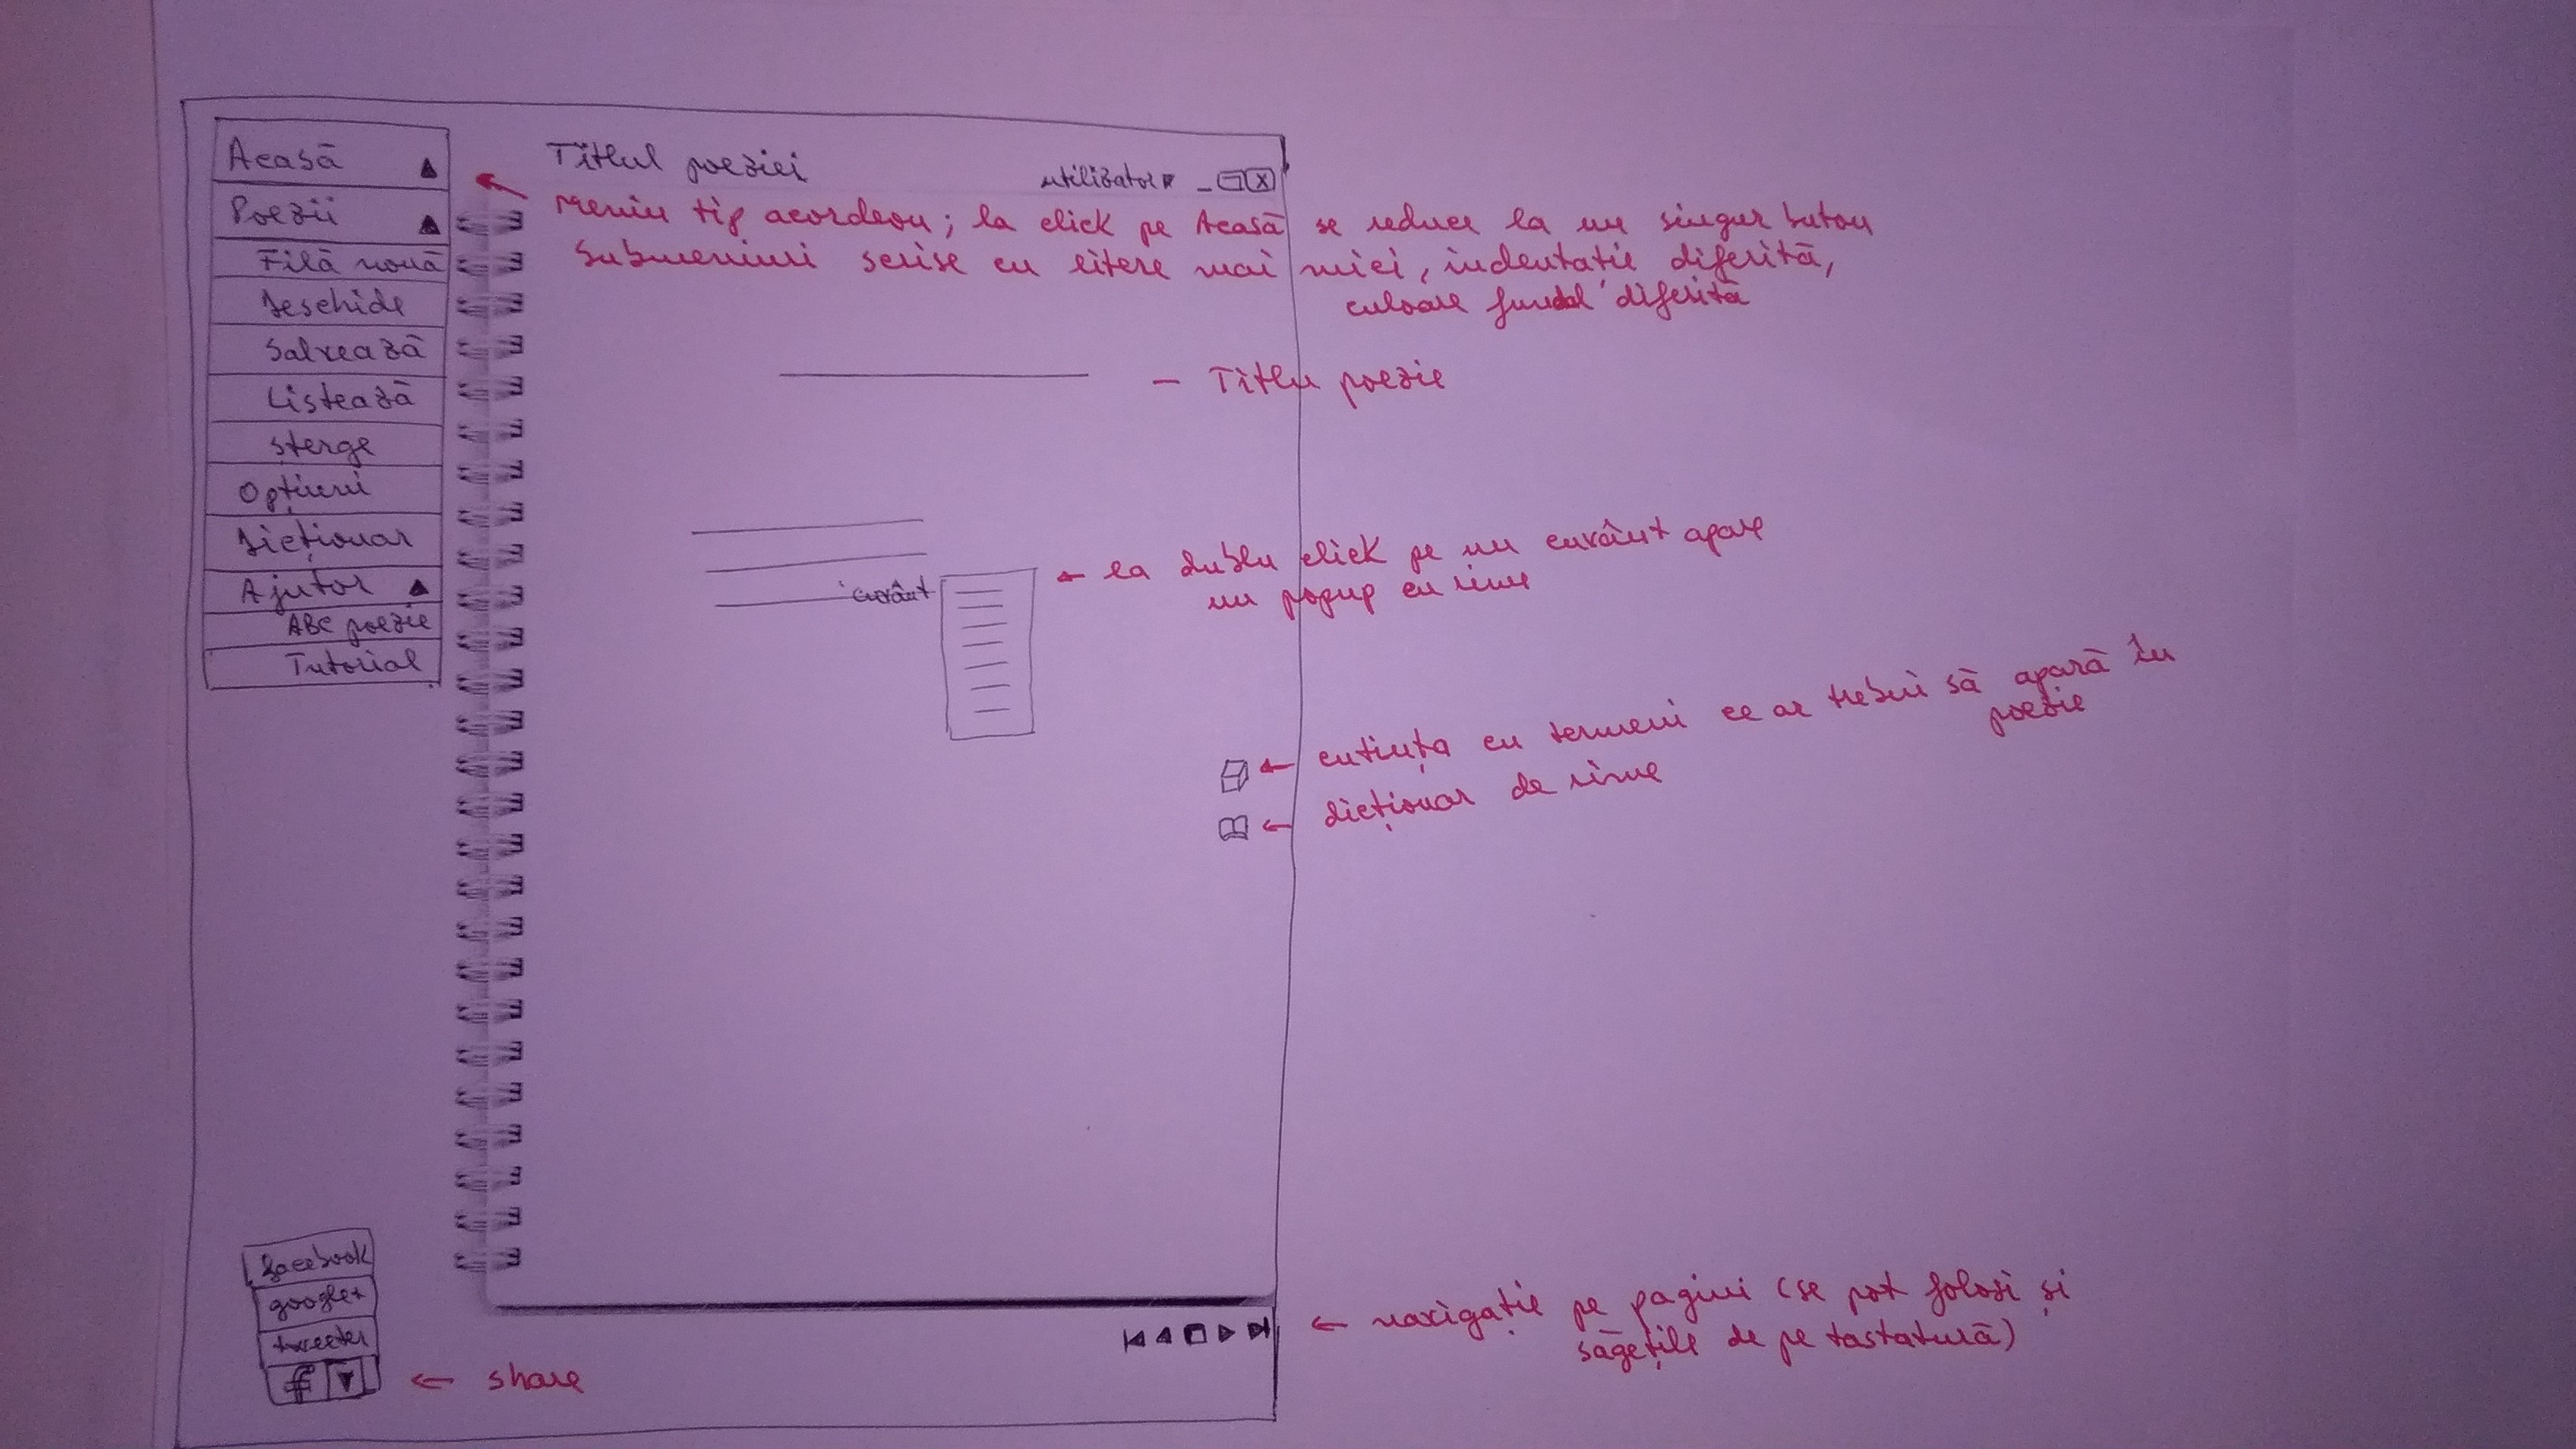 Acasă
Poezii
Filă nouă
Deschide
Salvează
Listează
Șterge
Opțiuni
Dicționar
Ajutor
ABC poezie
Tutorial
Titlul poeziei
utilizator
X
Meniu tip acordeon; la click pe Acasă se reduce la un singur buton
Submeniuri scrise cu litere mai mici, indentație diferită,
culoare fundal diferită
— Titlu poezie
cuvânt
la dublu click pe un cuvânt apare
un popup cu rime
cutiuța cu termeni ce ar trebui să apară în
poezie
dicționar de rime
facebook
google+
tweeter
f
share
navigație pe pagini (se pot folosi și
săgețile de pe tastatură)